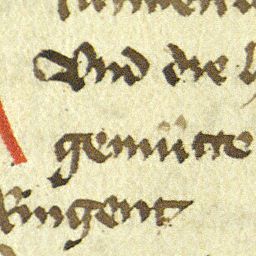 Vnd die
gemütte
Ringent